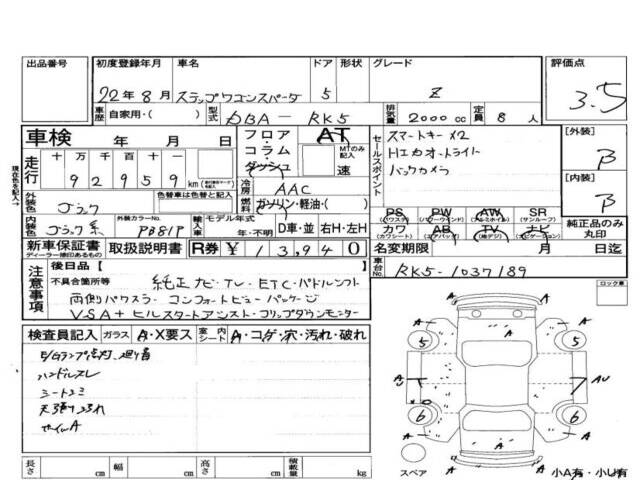 出品番号 初度登録年月 車名 ドア 形状 グレード 評価点
22年8月 ステップワゴンスパーダ 5 Z 3.5
車歴 自家用・( ) 型式 DBA－RK5 排気量 2000cc 定員 8人
車検 年 月 日
フロア・コラム・ダッシュ AT MTのみ記入 速
走行 十万千百十 92959 km
冷房 AAC
燃料 ガソリン・軽油・( )
セールスポイント
スマートキー×2
HIDオートライト
バックカメラ
[外装] B
[内装] B
外装色 ブラック 色替車は色替と記入
内装色 ブラック系 外装カラーNo. PB81P
輸入車 モデル年式 年・不明 D車・並 右H・左H
PS (パワステ) PW (パワーウインド) AW (アルミホイル) SR (サンルーフ)
カワ (カワシート) AB (エアバック) TV (地デジ) ナビ (ナビゲーション)
純正品のみ丸印
新車保証書 ディーラー捺印あるもの 取扱説明書 R券 ¥13,940
名変期限 月 日迄
車台No. RK5-1037189
注意事項
後日品[ ]
不具合箇所等 純正ナビ・TV・ETC・パドルシフト
両側パワスラ・コンフォートビューパッケージ
VSA+ヒルスタートアシスト・コーナリングダウンモニター
ロック車
検査員記入 ガラス A・X要ス 室内シート A・コゲ・穴・汚れ・破れ
ハンドルスレ
天張り汚れ
5 5
A A
AU
6 6
A A A
スペア
小A有・小U有
長さ cm 幅 cm 高さ cm 積載量 kg
現在色を記入